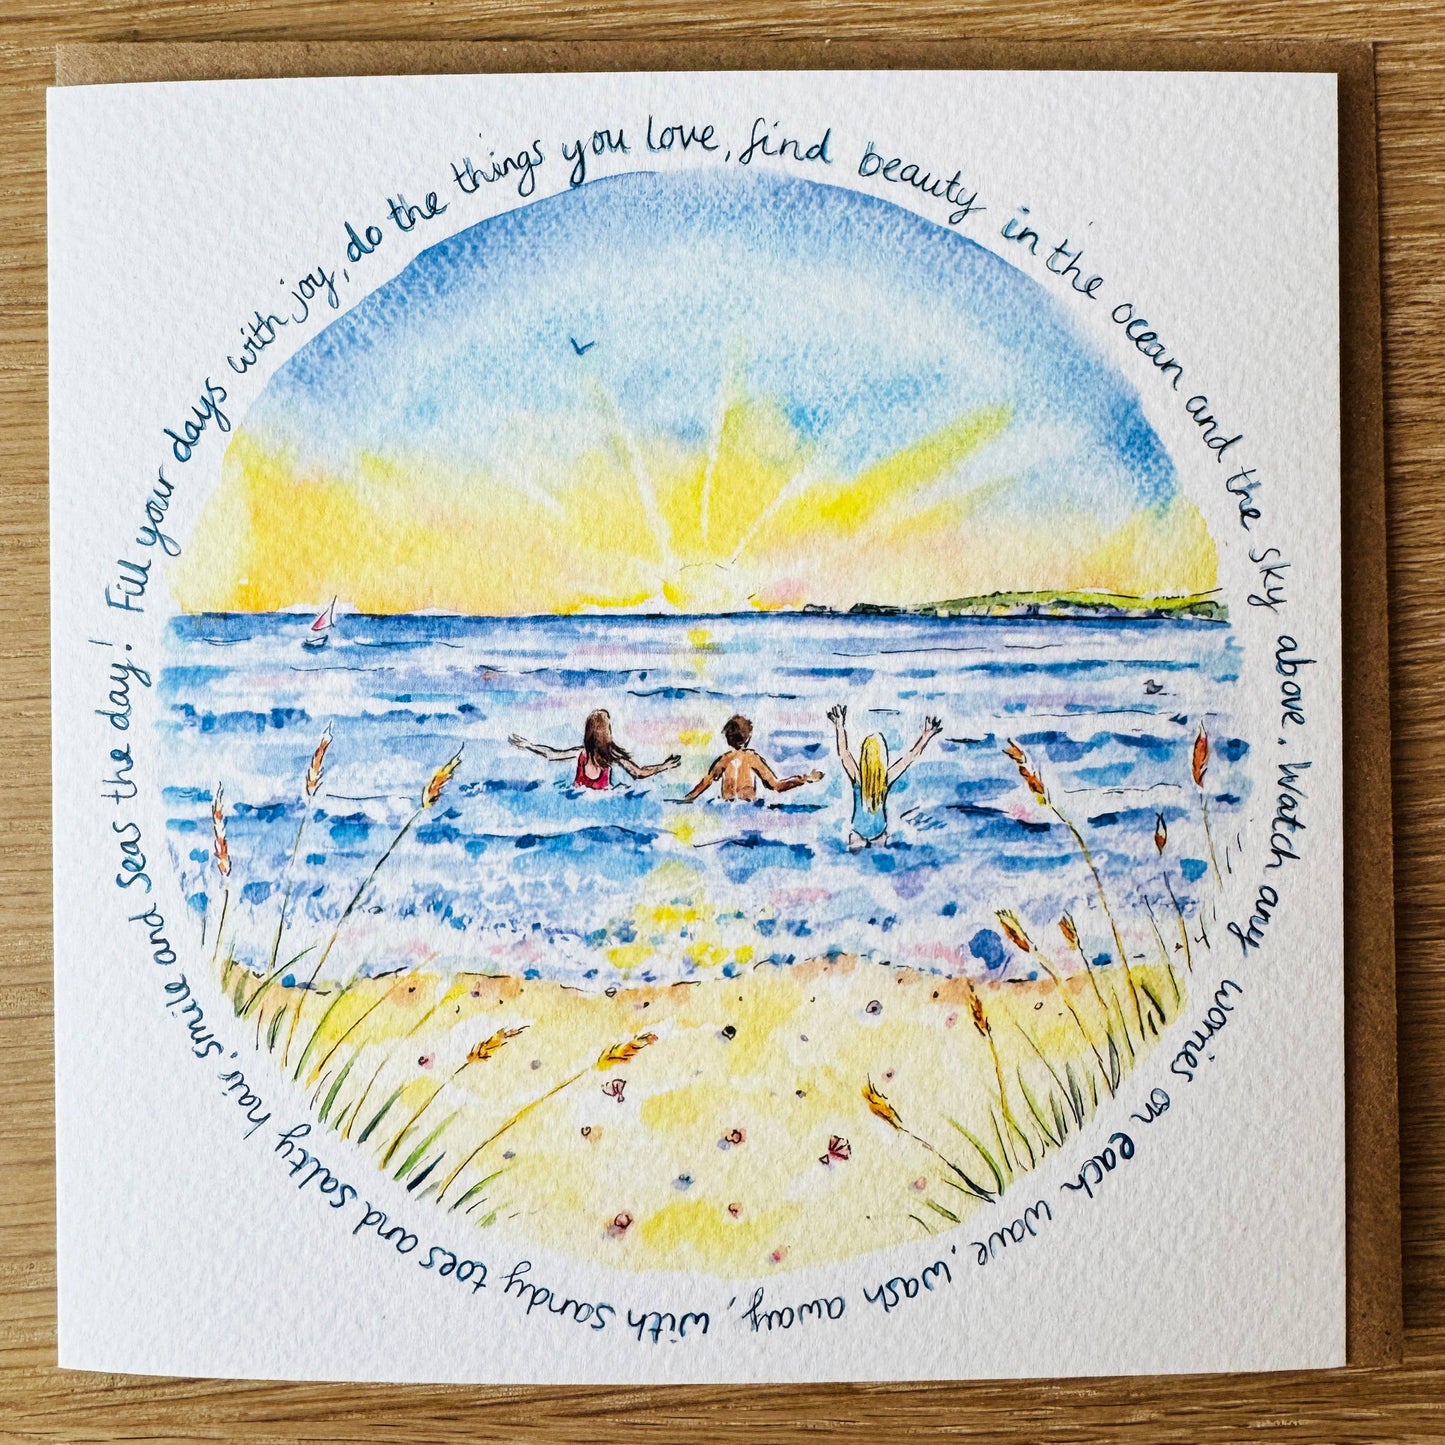 Fill your days with joy, do the things you love, find beauty in the ocean and the sky above. Watch any worries on each wave, wash away, with sandy toes and salty hair, smile and seas the day!